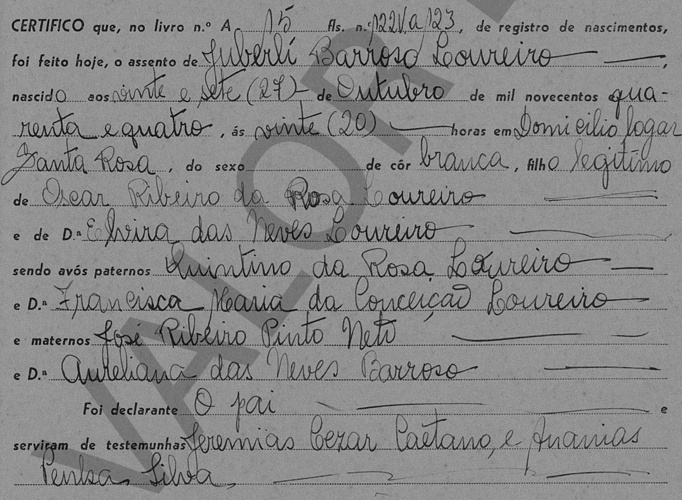 CERTIFICO que, no livro n.º A 15 fls. n.º 122V. a 123, de registro de nascimentos,
foi feito hoje, o assento de Juberlí Barroso Loureiro
nascido aos vinte e sete (27) de Outubro de mil novecentos qua-
renta e quatro, ás vinte (20) horas em Domicilio logar
Santa Rosa, do sexo de côr branca, filho legitimo
de Oscar Ribeiro da Rosa Loureiro
e de D.ª Elvira das Neves Loureiro
sendo avós paternos Quintino da Rosa Loureiro
e D.ª Francisca Maria da Conceição Loureiro
e maternos José Ribeiro Pinto Neto
e D.ª Aureliana das Neves Barroso
Foi declarante O pai e
serviram de testemunhas Jeremias Cezar Caetano, e Ananias
Silva,
VALOR